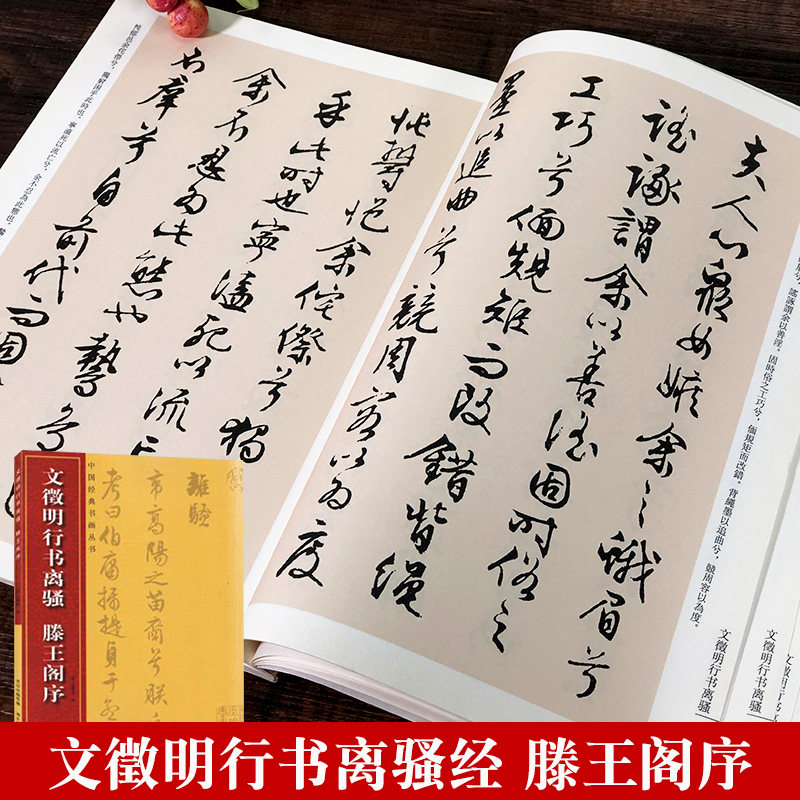 夫人心衆女嫉余之蛾眉兮
謠諑謂余以善淫固時俗之
工巧兮偭規矩而改錯背繩
墨以追曲兮競周容以為度
眉兮，謠諑謂余以善淫。固時俗之工巧兮，偭規矩而改錯。背繩墨以追曲兮，競周容以為度。
文徵明行书离骚
文徵明行书离骚
文徵明行书
忳鬱悒余侘傺兮獨
乎此時也寧溘死以流亡
余不忍為此態也鷙鳥
不羣兮自前代而固
忳鬱邑余侘傺兮，獨窮困乎此時也，寧溘死以流亡兮，余不忍為此態也，鷙
中国经典书画丛书
文徵明行书离骚 滕王阁序
文徵明行书离骚 滕王阁序
離騷
帝高陽之苗裔兮朕
考曰伯庸攝提貞于孟
文徵明行书离骚经 滕王阁序